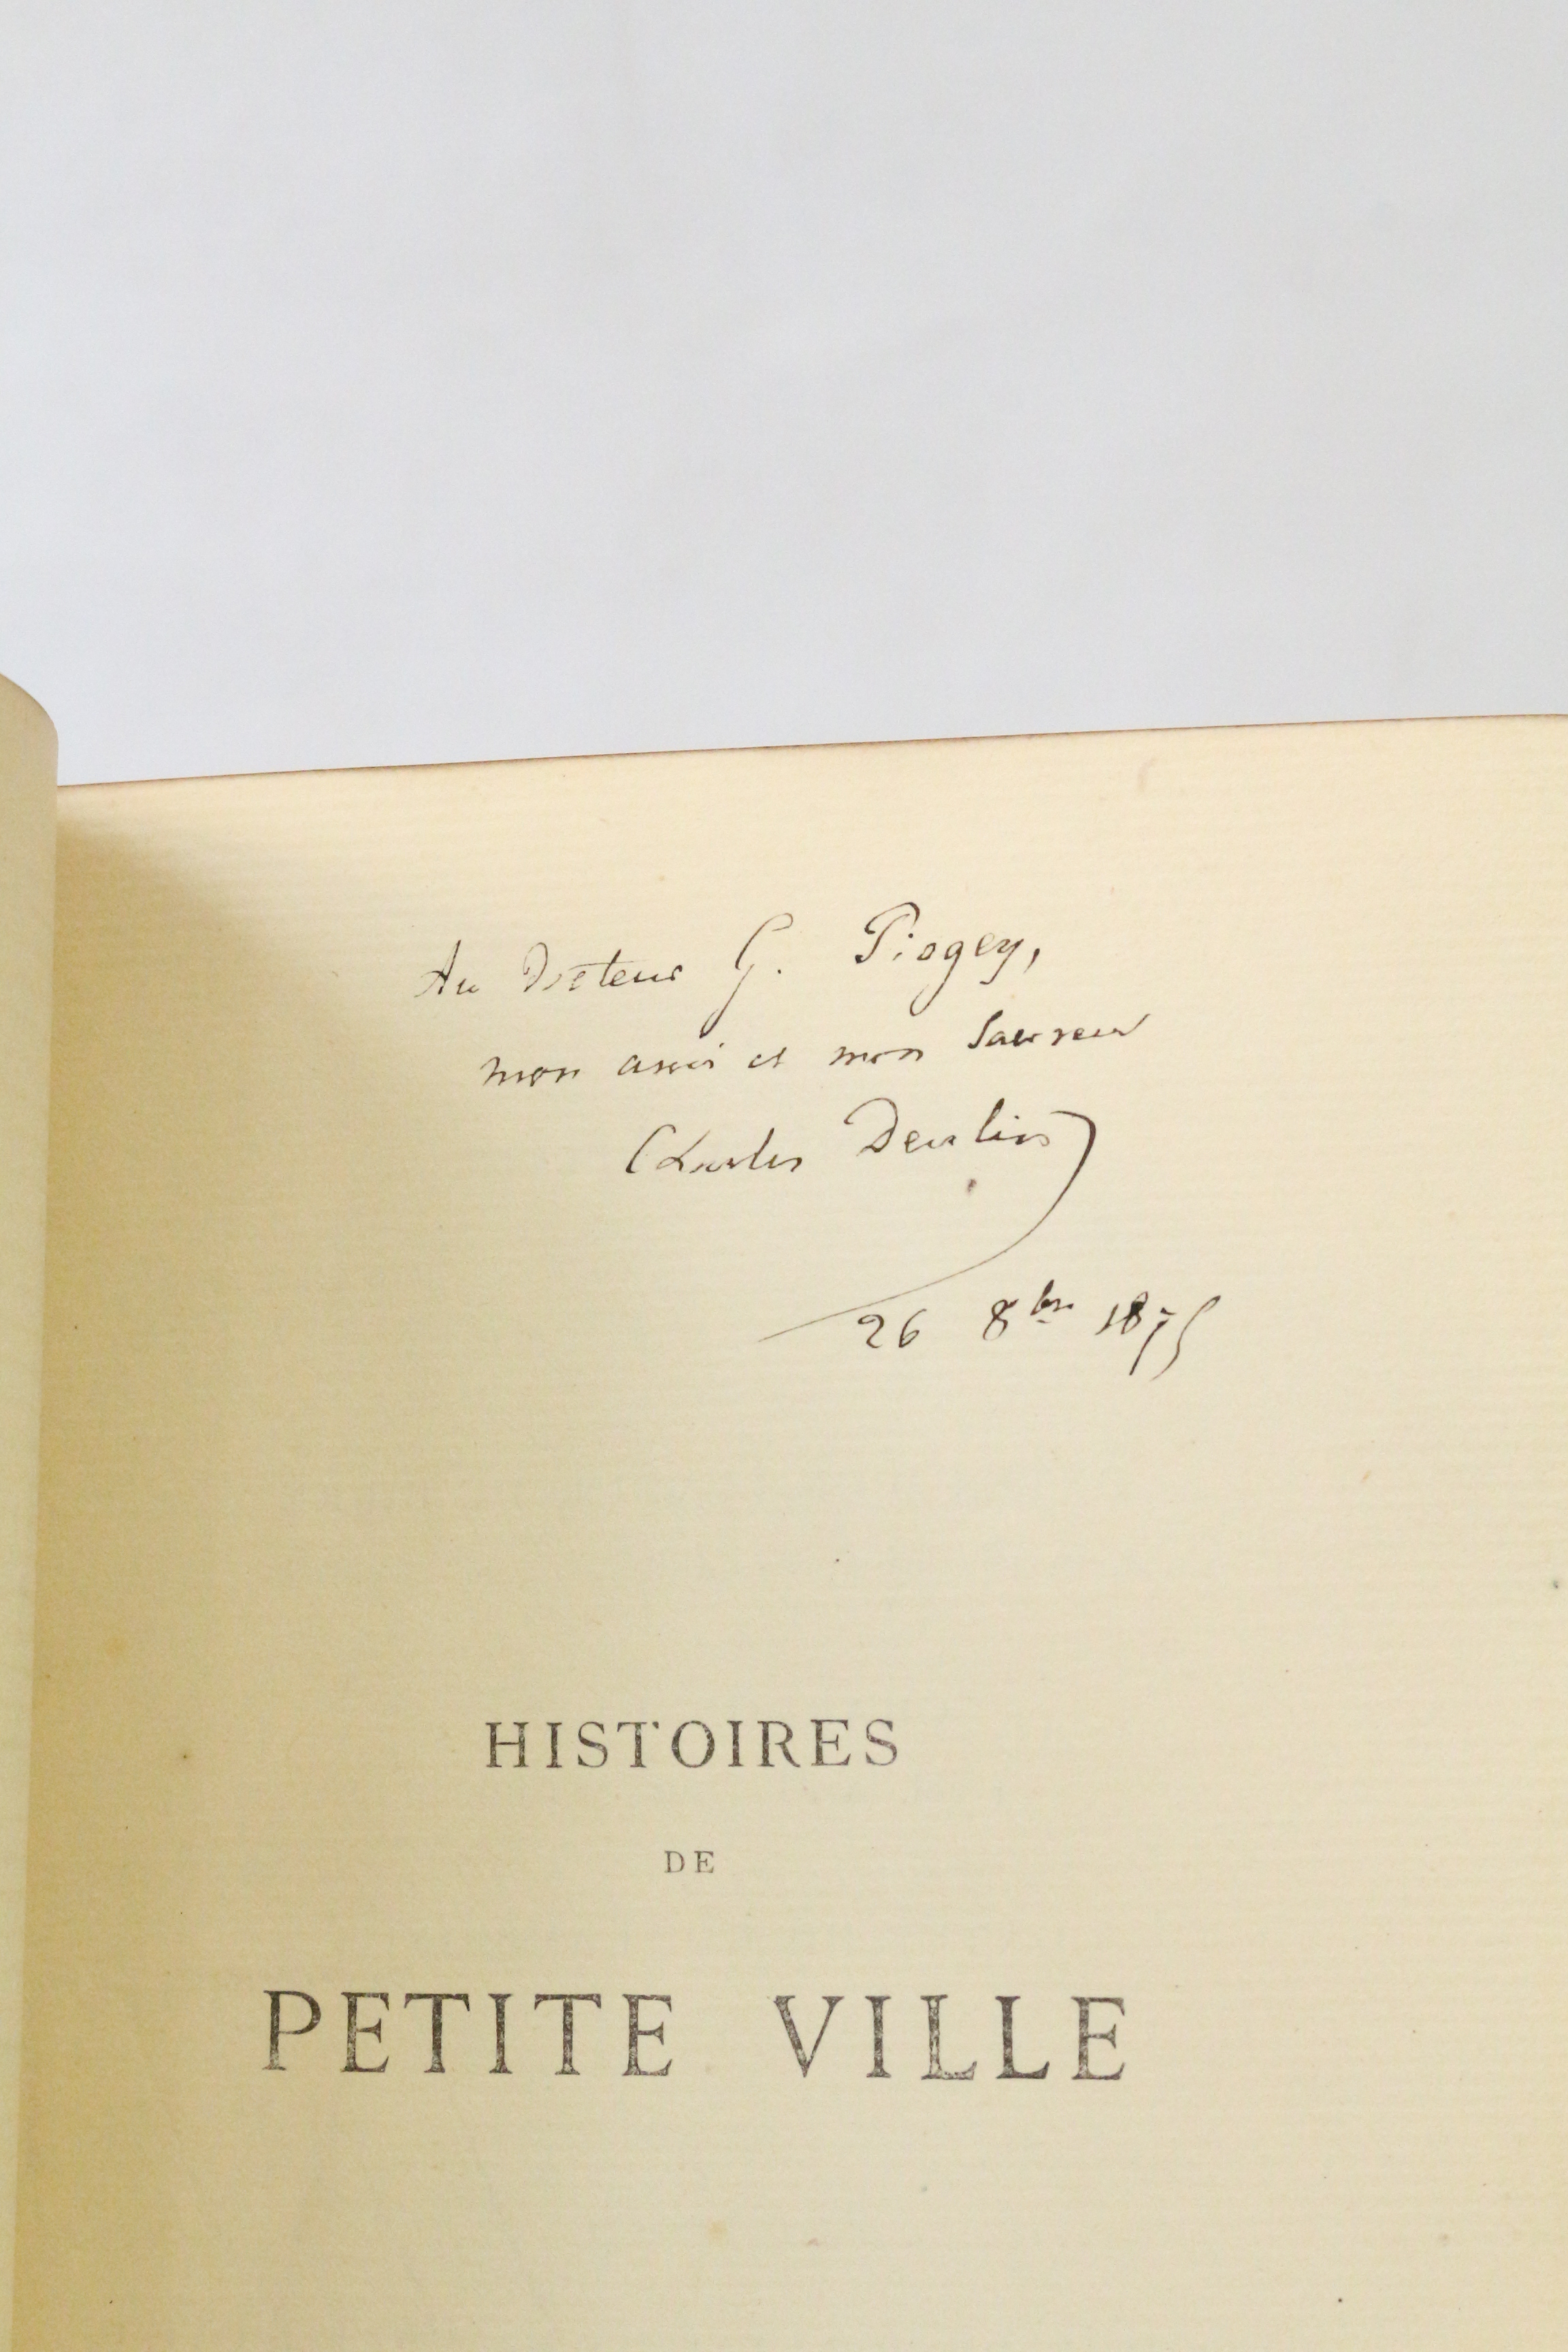 Au Docteur G. Piogey,
mon ami et mon sauveur
Charles Deulin
26 8bre 1875
HISTOIRES
DE
PETITE VILLE